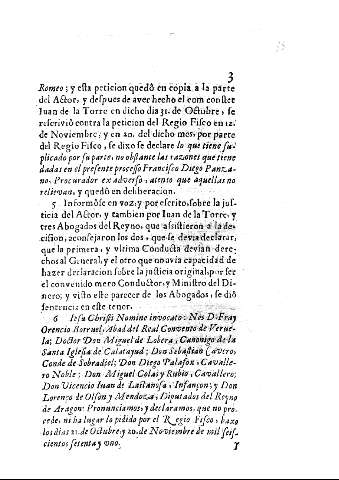 3
Romeo; y esta peticion quedò en copia a la parte
del Actor, y despues de aver hecho el com constet
Iuan de la Torre en dicho dia 31. de Octubre, se
rescriviò contra la peticion del Regio Fisco en 12.
de Noviembre; y en 20. del dicho mes, por parte
del Regio Fisco, se dixo se declare lo que tiene su-
plicado por su parte, no obstante las razones que tiene
dadas en el presente processo Francisco Diego Panza-
no, Procurador ex adverso, atento que aquellas no
relievan, y quedò en deliberacion.
5 Informòse en voz, y por escrito, sobre la jus-
ticia del Actor, y tambien por Iuan de la Torre, y
tres Abogados del Reyno, que assistieron a la de-
cision, aconsejaron los dos, que se devia declarar,
que la primera, y ultima Conducta devian dere-
chos al General, y el otro que avia capacidad de
hazer declaracion sobre la justicia original, por ser
el convenido mero Conductor, y Ministro del Di-
nero; y visto este parecer de los Abogados, se diò
sentencia en este tenor.
6 Iesu Christi Nomine invocato: Nos D. Fray
Orencio Borruel, Abad del Real Convento de Verue-
la; Doctor Don Miguel de Lobera, Canonigo de la
Santa Iglesia de Calatayud; Don Sebastian Cavero,
Conde de Sobradiel; Don Diego Palafox, Cavalle-
ro Noble; Don Miguel Colas y Rubio, Cavallero;
Don Vicencio Iuan de Lastanosa, Infançon; y Don
Lorenço de Olson y Mendoza, Diputados del Reyno
de Aragon: Pronunciamos, y declaramos, que no pro-
cede, ni ha lugar lo pedido por el Regio Fisco, baxo
los dias 21. de Octubre, y 20. de Noviembre de mil seis-
cientos setenta y uno.
Y